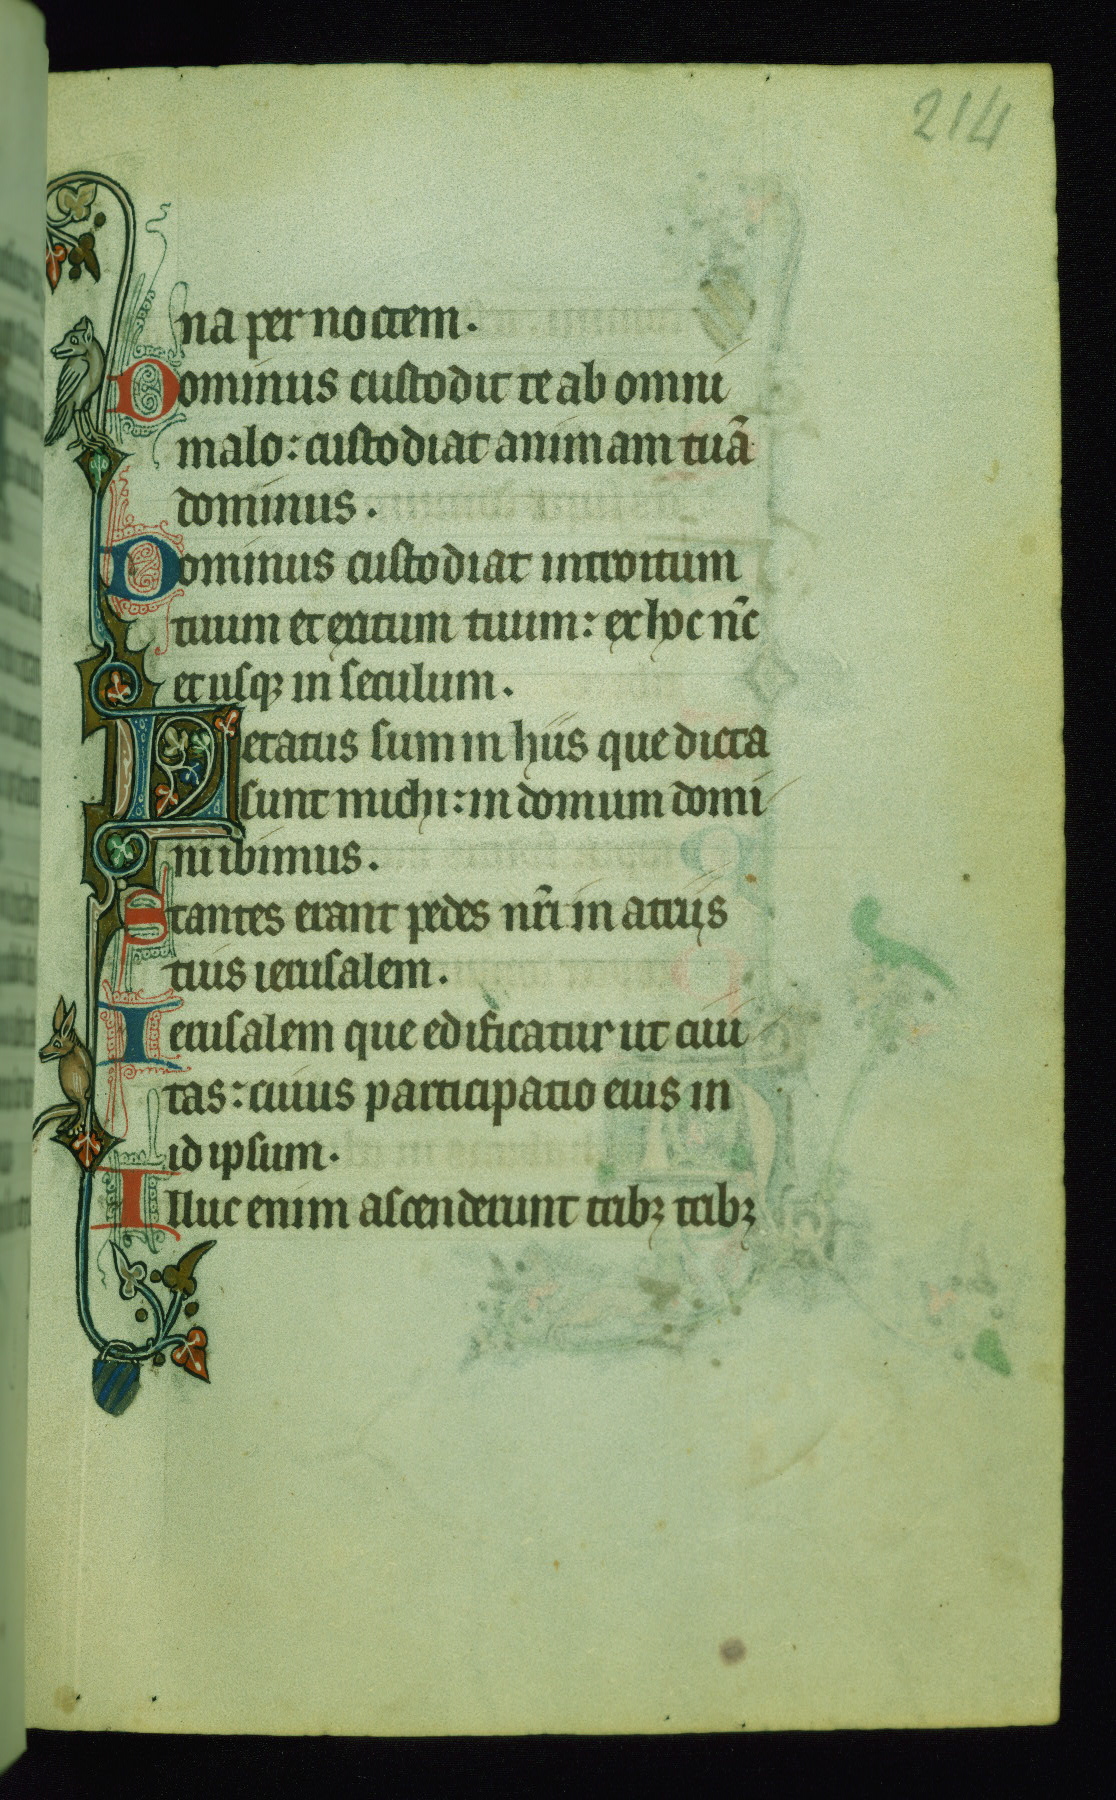 214
na per noctem.
Dominus custodit te ab omni
malo: custodiat animam tuā
dominus.
Dominus custodiat introitum
tuum et exitum tuum: ex hoc nc̄
et usqꝫ in seculum.
Letatus sum in hiis que dicta
sunt michi: in domum domi
ni ibimus.
Stantes erant pedes nr̄i in atriis
tuis ierusalem.
Ierusalem que edificatur ut ciui
tas: cuius participatio eius in
id ipsum.
Illuc enim ascenderunt tribꝫ tribꝫ